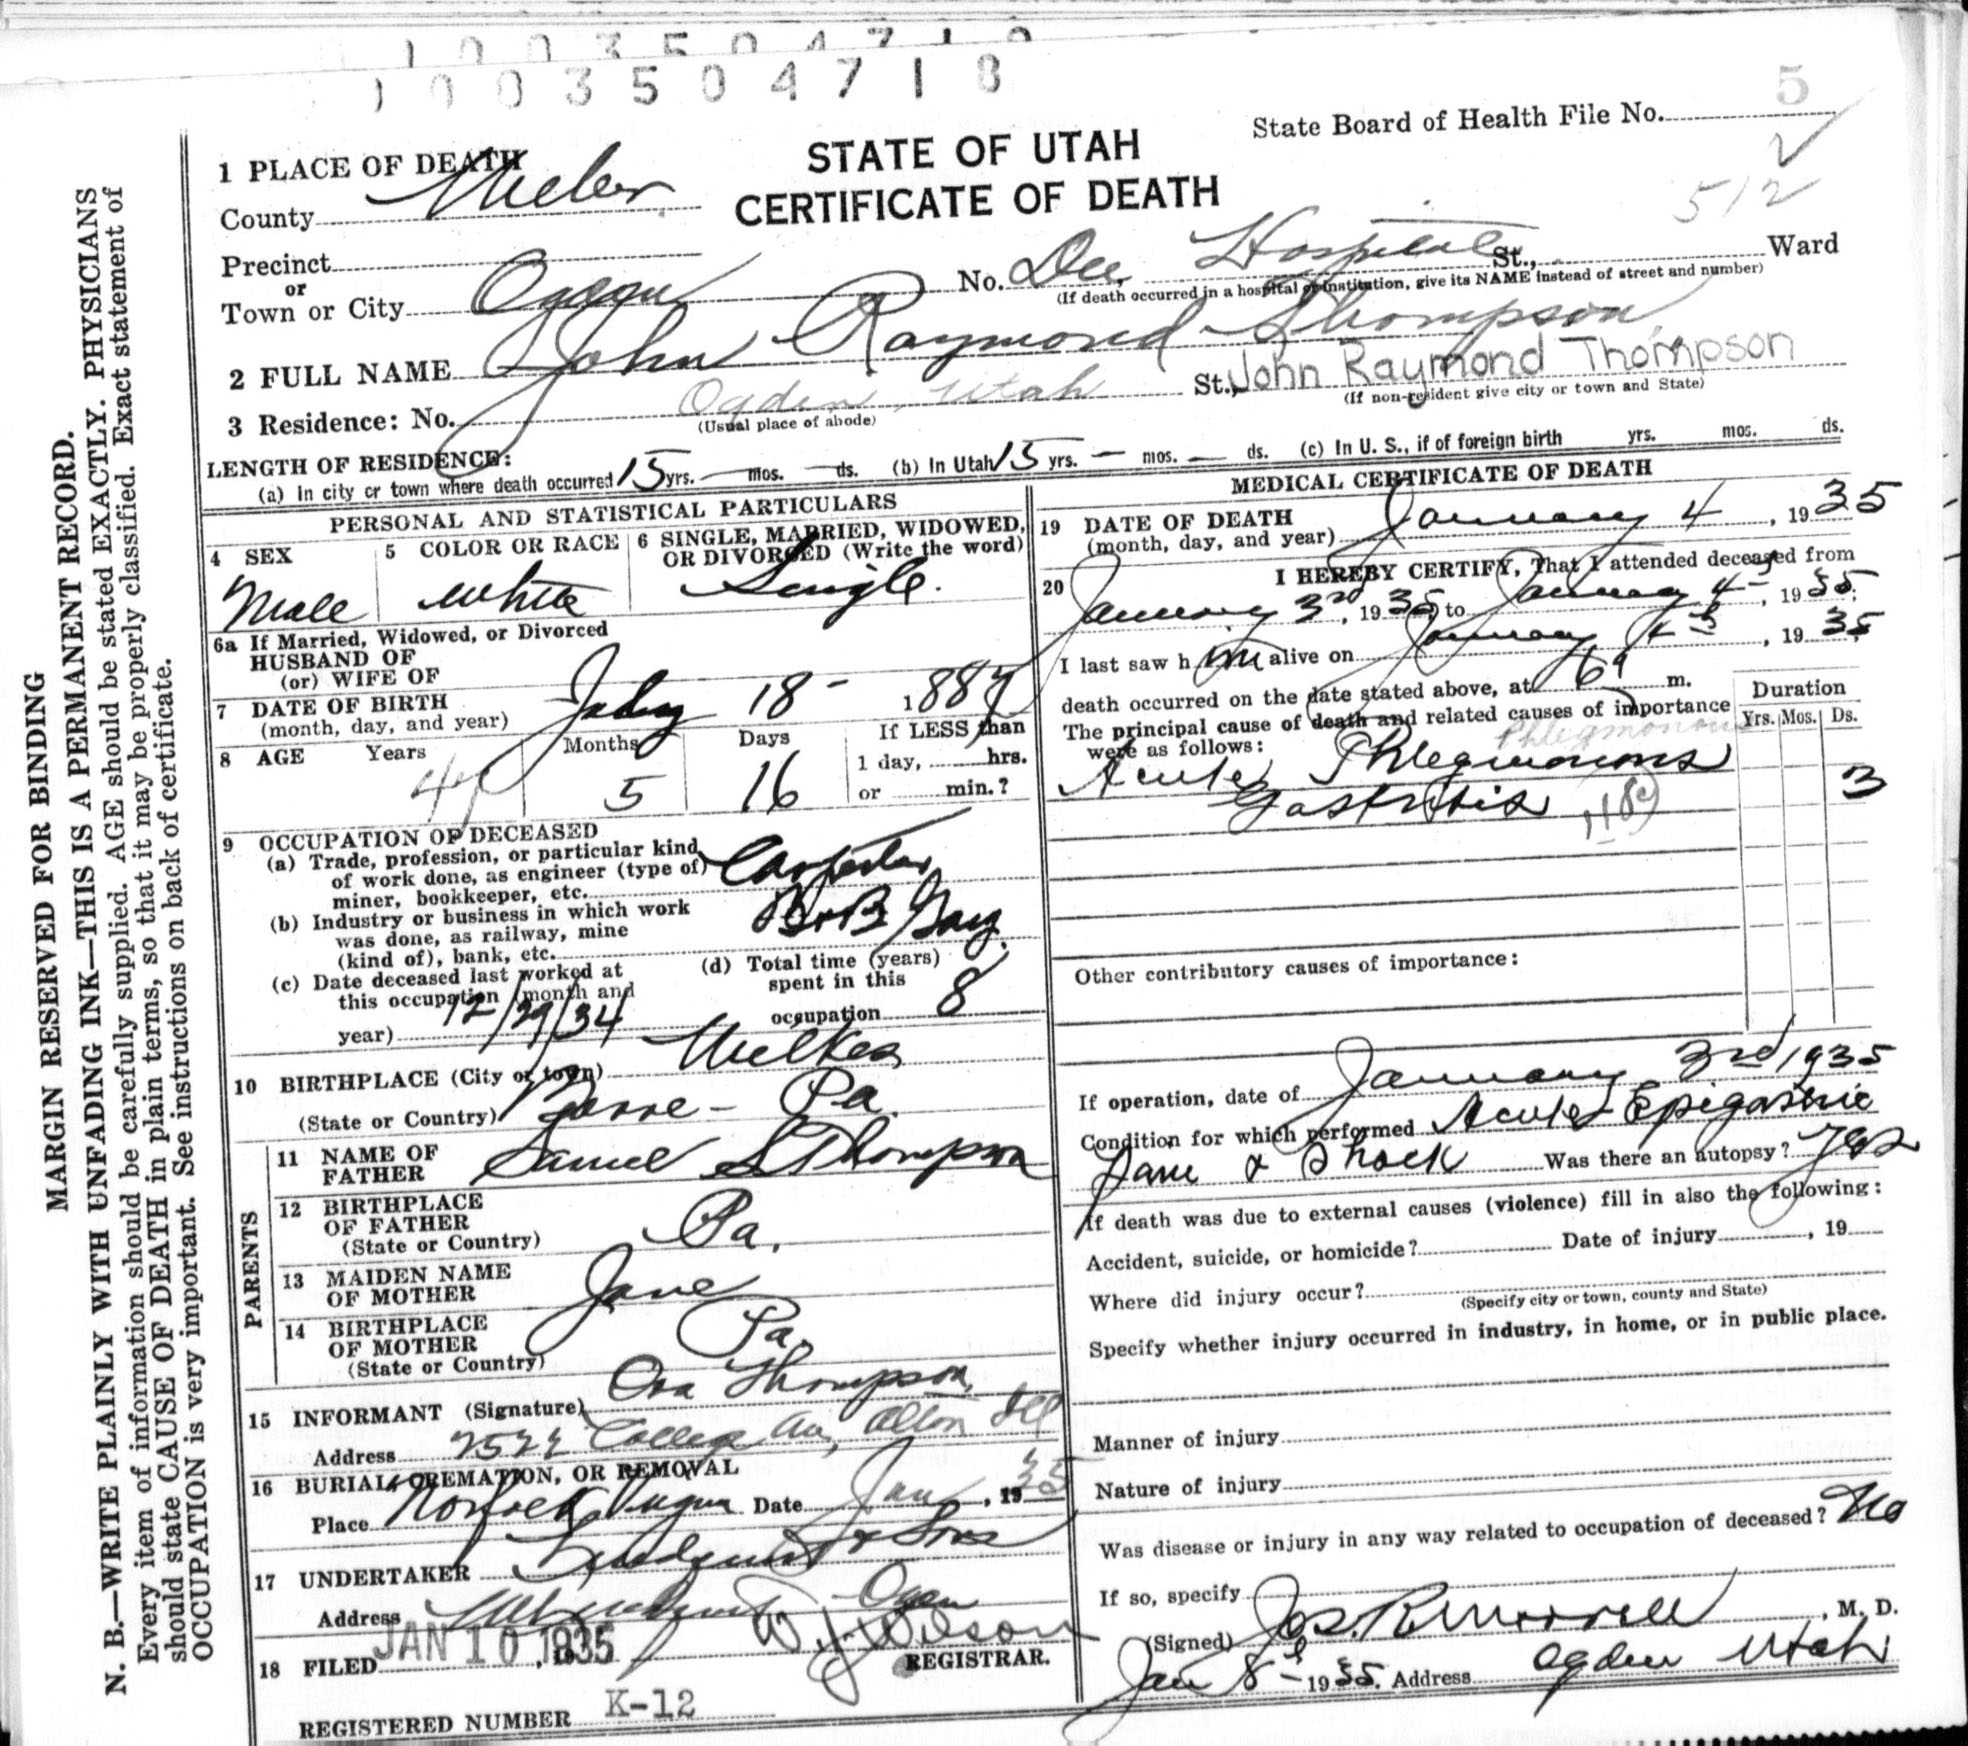 1003504718
5
State Board of Health File No.
512
STATE OF UTAH
CERTIFICATE OF DEATH
1 PLACE OF DEATH
County Weber
Precinct
or
Town or City Ogden No. Dee Hospital St., Ward
(If death occurred in a hospital or institution, give its NAME instead of street and number)
2 FULL NAME John Raymond Thompson
John Raymond Thompson
3 Residence: No. Ogden, Utah St.,
(Usual place of abode) (If non-resident give city or town and State)
LENGTH OF RESIDENCE:
(a) In city or town where death occurred 15 yrs. — mos. — ds. (b) In Utah 15 yrs. — mos. — ds. (c) In U. S., if of foreign birth yrs. mos. ds.
PERSONAL AND STATISTICAL PARTICULARS
4 SEX
Male
5 COLOR OR RACE
White
6 SINGLE, MARRIED, WIDOWED,
OR DIVORCED (Write the word)
Single.
6a If Married, Widowed, or Divorced
HUSBAND OF
(or) WIFE OF
7 DATE OF BIRTH
(month, day, and year) July 18 - 1887
8 AGE Years Months Days If LESS than
47 5 16 1 day, hrs.
or min.?
9 OCCUPATION OF DECEASED
(a) Trade, profession, or particular kind
of work done, as engineer (type of)
miner, bookkeeper, etc. Carpenter
(b) Industry or business in which work
was done, as railway, mine
(kind of), bank, etc.
(c) Date deceased last worked at
this occupation (month and
year) 12/29/34
(d) Total time (years)
spent in this
occupation 8
10 BIRTHPLACE (City or town) Wilkes
(State or Country) Barre - Pa.
PARENTS
11 NAME OF
FATHER Samuel S Thompson
12 BIRTHPLACE
OF FATHER
(State or Country) Pa.
13 MAIDEN NAME
OF MOTHER Jane
14 BIRTHPLACE
OF MOTHER
(State or Country) Pa.
15 INFORMANT (Signature) Ora Thompson
Address College Av, Alton Ill
16 BURIAL, CREMATION, OR REMOVAL
Place Norfolk Date Jan , 1935
17 UNDERTAKER & Sons
Address Ogden
18 FILED JAN 10 1935 , 19 W. J. Wilson
REGISTRAR.
REGISTERED NUMBER K-12
MEDICAL CERTIFICATE OF DEATH
19 DATE OF DEATH
(month, day, and year) January 4 , 1935
20 I HEREBY CERTIFY, That I attended deceased from
January 3rd , 1935, to January 4 , 1935;
I last saw him alive on January 4 , 1935
death occurred on the date stated above, at m.
The principal cause of death and related causes of importance
were as follows: Phlegmonous
Acute Phlegmonous
Gastritis
Duration
Yrs. Mos. Ds.
3
Other contributory causes of importance:
If operation, date of January 3rd 1935
Condition for which performed Acute Epigastric
Pain & Shock Was there an autopsy? Yes
If death was due to external causes (violence) fill in also the following:
Accident, suicide, or homicide? Date of injury , 19
Where did injury occur?
(Specify city or town, county and State)
Specify whether injury occurred in industry, in home, or in public place.
Manner of injury
Nature of injury
Was disease or injury in any way related to occupation of deceased? No
If so, specify
(Signed) Jos. R Morrell , M. D.
Jan 8 1935. Address Ogden Utah
MARGIN RESERVED FOR BINDING
N. B.—WRITE PLAINLY WITH UNFADING INK—THIS IS A PERMANENT RECORD.
Every item of information should be carefully supplied. AGE should be stated EXACTLY. PHYSICIANS
should state CAUSE OF DEATH in plain terms, so that it may be properly classified. Exact statement of
OCCUPATION is very important. See instructions on back of certificate.